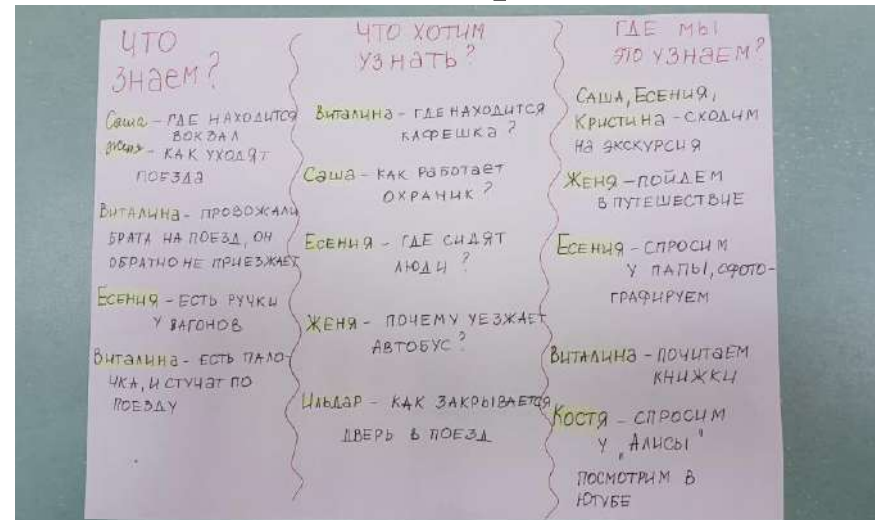 ЧТО
ЗНАЕМ?
Саша - ГДЕ НАХОДИТСЯ
ВОКЗАЛ
Женя - КАК УХОДЯТ
ПОЕЗДА
ВИТАЛИНА - ПРОВОЖАЛИ
БРАТА НА ПОЕЗД, ОН
ОБРАТНО НЕ ПРИЕЗЖАЕТ
ЕСЕНИЯ - ЕСТЬ РУЧКИ
У ВАГОНОВ
ВИТАЛИНА - ЕСТЬ ПАЛО-
ЧКА, И СТУЧАТ ПО
ПОЕЗДУ
ЧТО ХОТИМ
УЗНАТЬ?
ВИТАЛИНА - ГДЕ НАХОДИТСЯ
КАФЕШКА?
САША - КАК РАБОТАЕТ
ОХРАНИК?
ЕСЕНИЯ - ГДЕ СИДЯТ
ЛЮДИ?
ЖЕНЯ - ПОЧЕМУ УЕЗЖАЕТ
АВТОБУС?
ИЛЬДАР - КАК ЗАКРЫВАЕТСЯ
ДВЕРЬ В ПОЕЗД
ГДЕ МЫ
ЭТО УЗНАЕМ?
САША, ЕСЕНИЯ,
КРИСТИНА - СХОДИМ
НА ЭКСКУРСИЯ
ЖЕНЯ - ПОЙДЕМ
В ПУТЕШЕСТВИЕ
ЕСЕНИЯ - СПРОСИМ
У ПАПЫ, СФОТО-
ГРАФИРУЕМ
ВИТАЛИНА - ПОЧИТАЕМ
КНИЖКИ
КОСТЯ - СПРОСИМ
У „АЛИСЫ"
ПОСМОТРИМ В
ЮТУБЕ